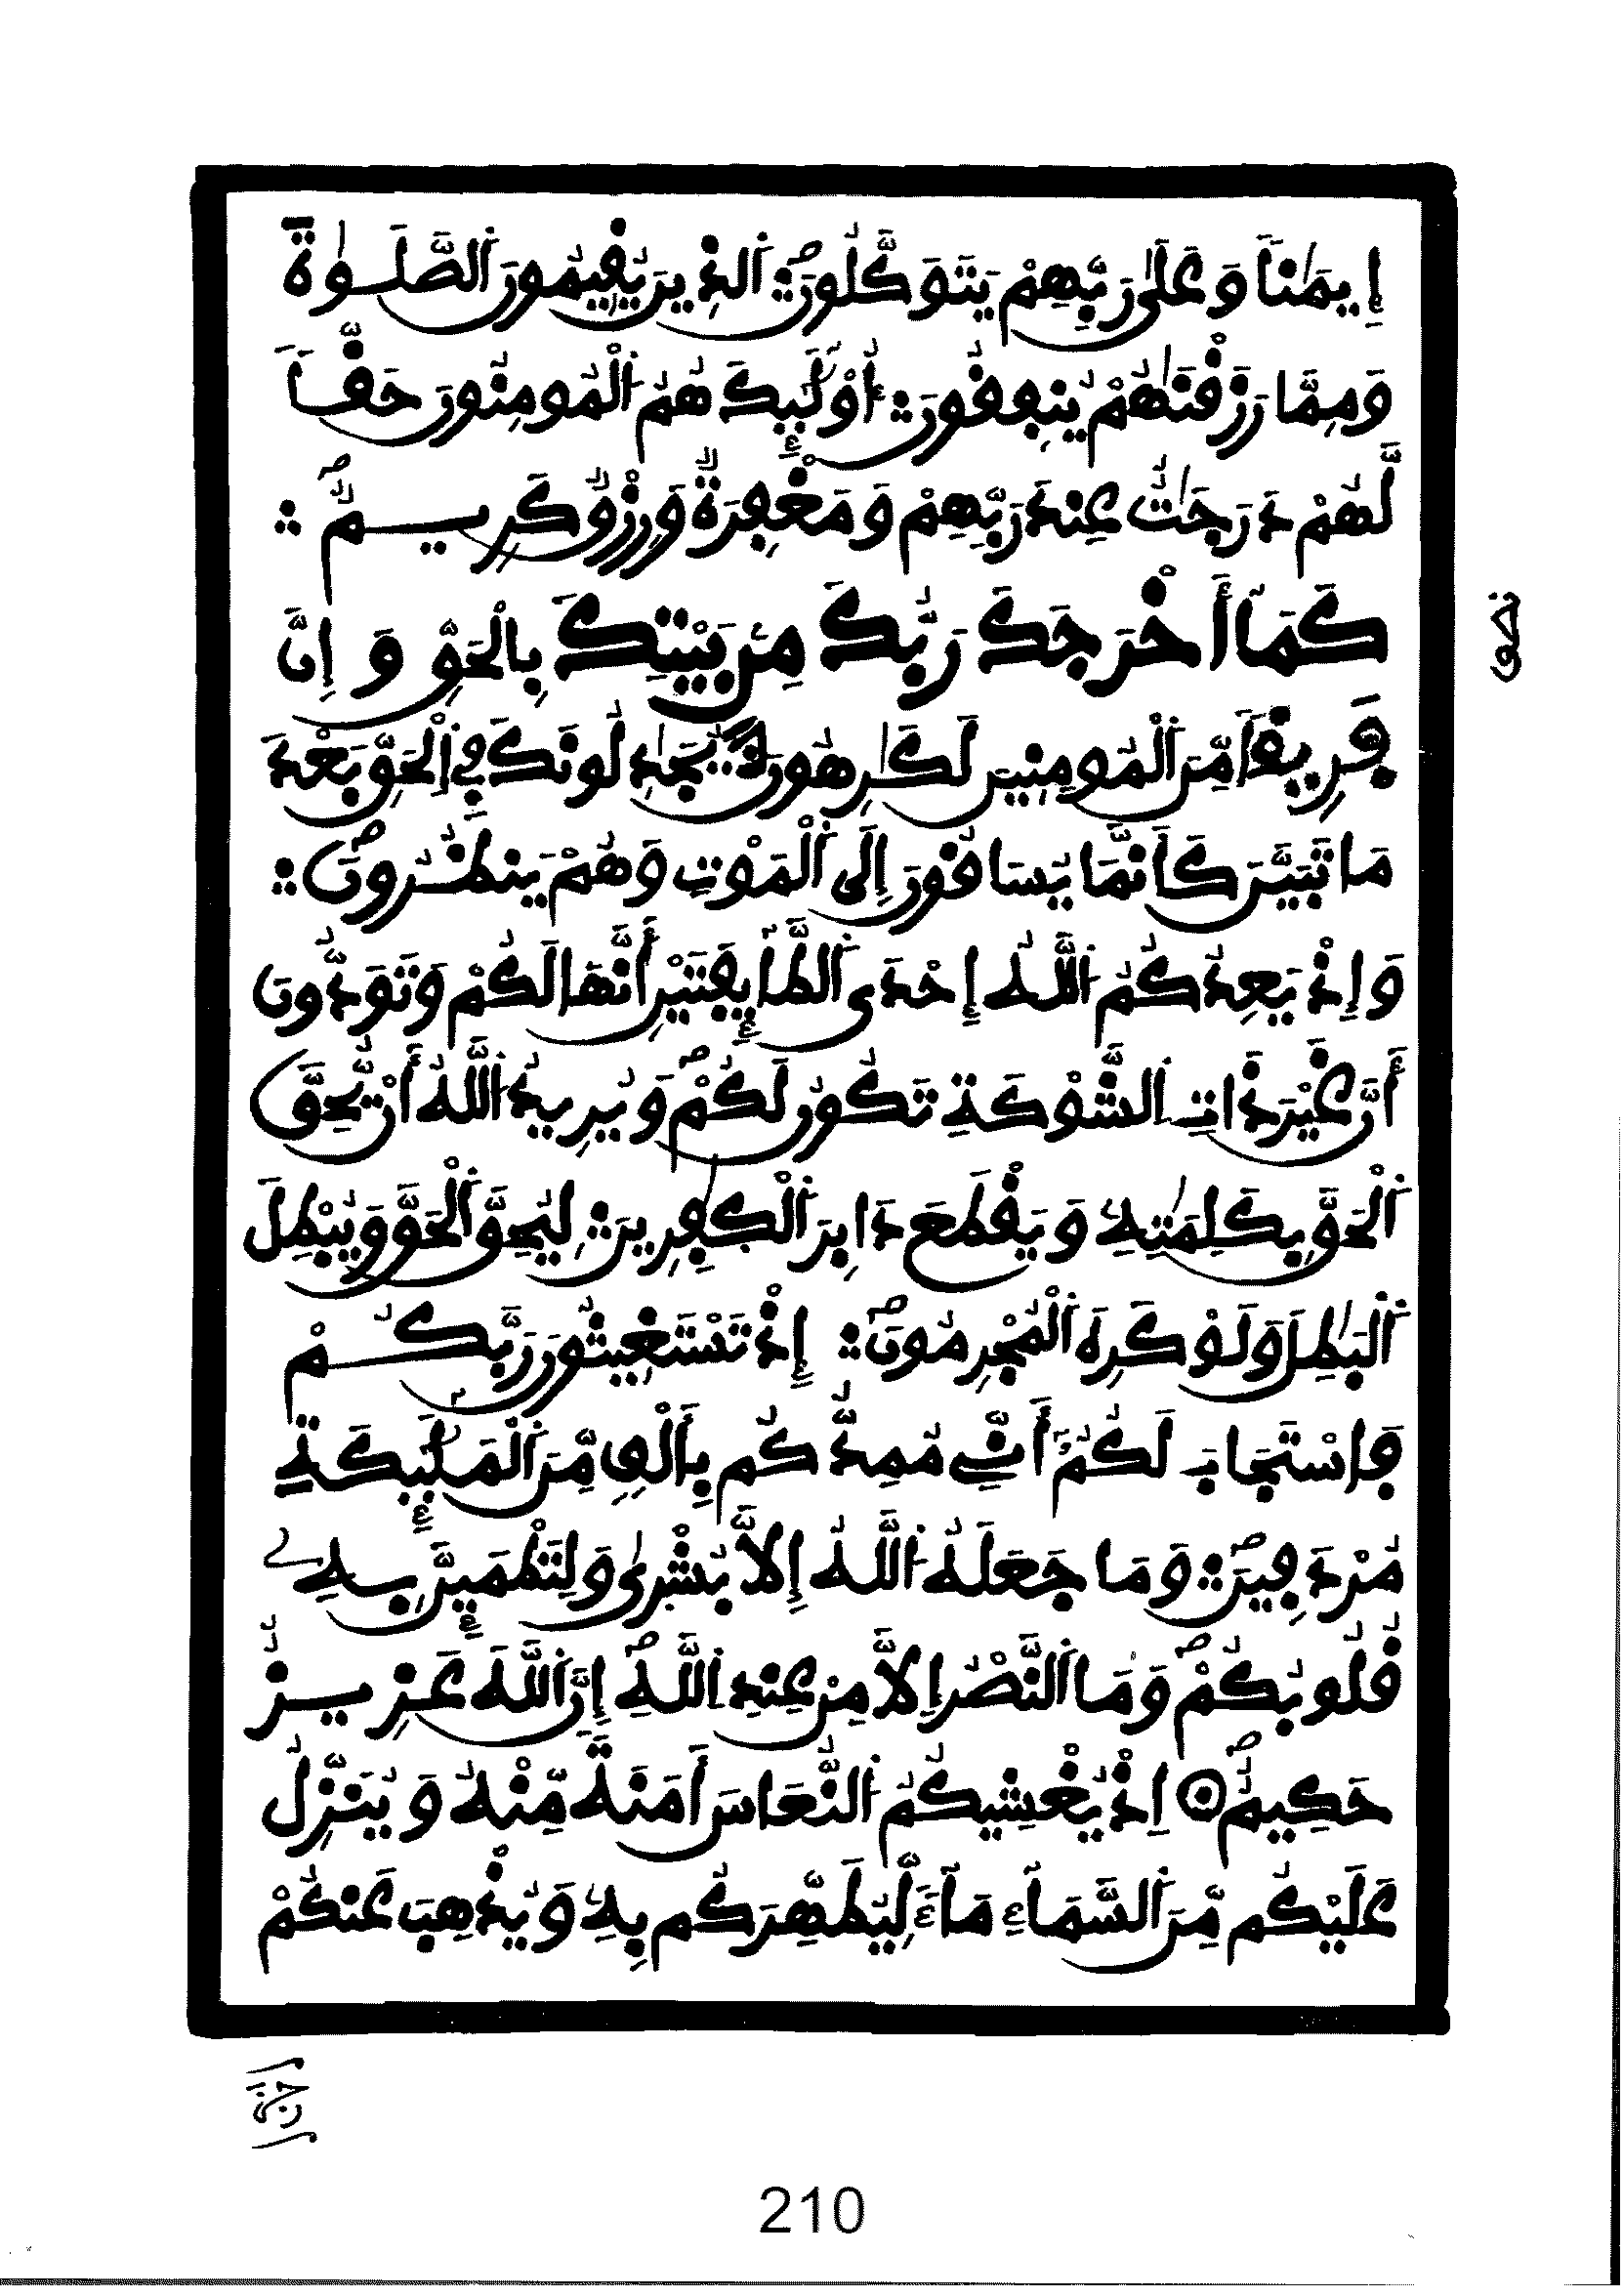 إِيمَٰنٗا وَعَلَىٰ رَبِّهِمْ يَتَوَكَّلُونَ ۞ اَ۬لذِينَ يُقِيمُونَ اَ۬لصَّلَوٰةَ
وَمِمَّا رَزَقْنَٰهُمْ يُنفِقُونَ ۞ أُوْلَٰٓئِكَ هُمُ اُ۬لْمُومِنُونَ حَقّٗا
لَّهُمْ دَرَجَٰتٌ عِندَ رَبِّهِمْ وَمَغْفِرَةٞ وَرِزْقٞ كَرِيمٞ ۞
كَمَا أَخْرَجَكَ رَبُّكَ مِنۢ بَيْتِكَ بِالْحَقِّ وَإِنَّ
فَرِيقٗا مِّنَ اَ۬لْمُومِنِينَ لَكَٰرِهُونَ ۞ يُجَٰدِلُونَكَ فِي اِ۬لْحَقِّ بَعْدَ
مَا تَبَيَّنَ كَأَنَّمَا يُسَاقُونَ إِلَى اَ۬لْمَوْتِ وَهُمْ يَنظُرُونَ ۞
وَإِذْ يَعِدُكُمُ اُ۬للَّهُ إِحْدَى اَ۬لطَّآئِفَتَيْنِ أَنَّهَا لَكُمْ وَتَوَدُّونَ
أَنَّ غَيْرَ ذَاتِ اِ۬لشَّوْكَةِ تَكُونُ لَكُمْ وَيُرِيدُ اُ۬للَّهُ أَنْ يُّحِقَّ
اَ۬لْحَقَّ بِكَلِمَٰتِهِۦ وَيَقْطَعَ دَابِرَ اَ۬لْكَٰفِرِينَ ۞ لِيُحِقَّ اَ۬لْحَقَّ وَيُبْطِلَ
اَ۬لْبَٰطِلَ وَلَوْ كَرِهَ اَ۬لْمُجْرِمُونَ ۞ إِذْ تَسْتَغِيثُونَ رَبَّكُمْ
فَاسْتَجَابَ لَكُمُۥٓ أَنِّي مُمِدُّكُم بِأَلْفٖ مِّنَ اَ۬لْمَلَٰٓئِكَةِ
مُرْدَفِينَ ۞ وَمَا جَعَلَهُ اُ۬للَّهُ إِلَّا بُشْرَىٰ وَلِتَطْمَئِنَّ بِهِۦ
قُلُوبُكُمْ وَمَا اَ۬لنَّصْرُ إِلَّا مِنْ عِندِ اِ۬للَّهِ إِنَّ اَ۬للَّهَ عَزِيزٌ
حَكِيمٌ ۞ اِذْ يُغْشِيكُمُ اُ۬لنُّعَاسَ أَمَنَةٗ مِّنْهُ وَيُنَزِّلُ
عَلَيْكُم مِّنَ اَ۬لسَّمَآءِ مَآءٗ لِّيُطَهِّرَكُم بِهِۦ وَيُذْهِبَ عَنكُمْ
210